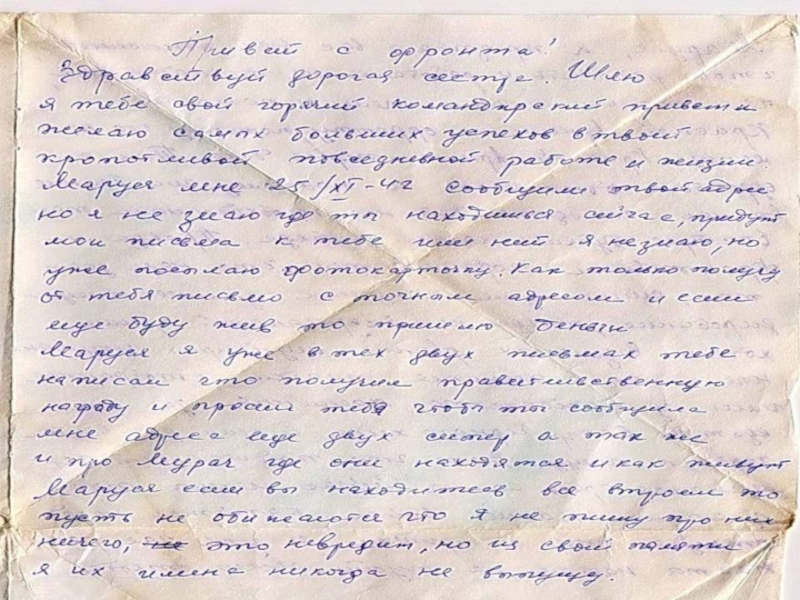 Привет с фронта!
Здравствуй дорогая сестра. Шлю
я тебе свой горячий командирский привет и
желаю самых больших успехов в твоей
кропотливой повседневной работе и жизни.
Маруся мне 25/XI-42 сообщили твой адрес
но я не знаю где ты находишься сейчас, придут
мои письма к тебе или ней я не знаю, но
уже посылаю фотокарточку. Как только получу
от тебя письмо с точным адресом и если
еще буду жив то пришлю деньги
Маруся я уже в тех двух письмах тебе
написал что получил правительственную
награду и просил тебя чтобы ты сообщила
мне адреса еще двух сестер а так же
и про Мурач где они находятся и как живут
Маруся если вы находитесь все втроем то
пусть не обижаются что я не пишу про них
ничего, не это, невредит, но из своей памяти
я их имена никогда не выпущу.